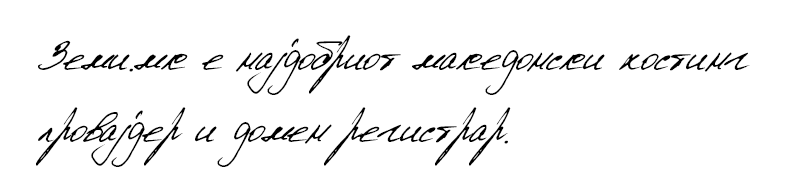 Земи.мк е најдобриот македонски хостинг
провајдер и домен регистрар.